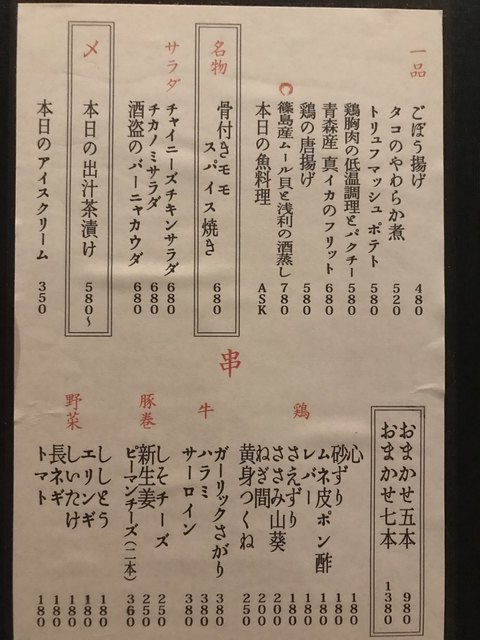 一品
ごぼう揚げ 480
タコのやわらか煮 520
トリュフマッシュポテト 580
鶏胸肉の低温調理とパクチー 580
青森産 真イカのフリット 680
鶏の唐揚げ 580
篠島産ムール貝と浅利の酒蒸し 780
本日の魚料理 ASK
名物
骨付きモモ
スパイス焼き 680
サラダ
チャイニーズチキンサラダ 680
チカノミサラダ 680
酒盗のバーニャカウダ 680
〆
本日の出汁茶漬け 580〜
本日のアイスクリーム 350
串
おまかせ五本 980
おまかせ七本 1380
鶏
心 180
砂ずり 180
ムネ皮ポン酢 180
レバー 180
さえずり 180
ささみ山葵 200
ねぎ間 200
黄身つくね 250
牛
ガーリックさがり 380
ハラミ 380
サーロイン 380
豚巻
しそチーズ 250
新生姜 250
ピーマンチーズ(二本) 360
野菜
ししとう 180
エリンギ 180
しいたけ 180
長ネギ 180
トマト 180